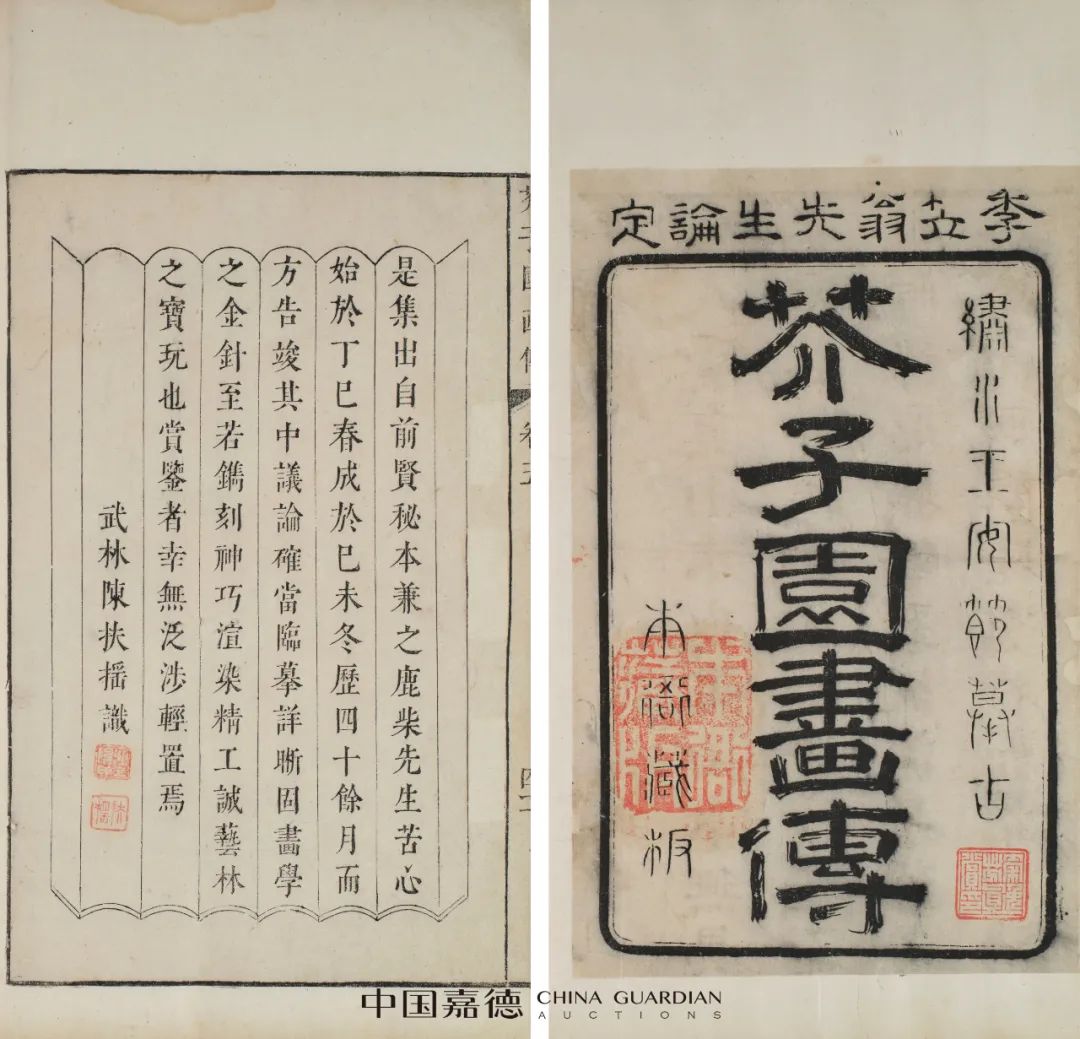 李笠翁先生論定
繡水王安節摹古
芥子園畫傳
本衙藏板
芥子園畫傳
卷五
是集出自前賢秘本兼之鹿柴先生苦心
始於丁巳春成於巳未冬歷四十餘月而
方告竣其中議論確當臨摹詳晰固畫學
之金針至若鐫刻神巧渲染精工誠藝林
之寶玩也賞鑒者幸無泛涉輕置焉
武林陳扶揺識
中国嘉德 CHINA GUARDIAN
AUCTIONS